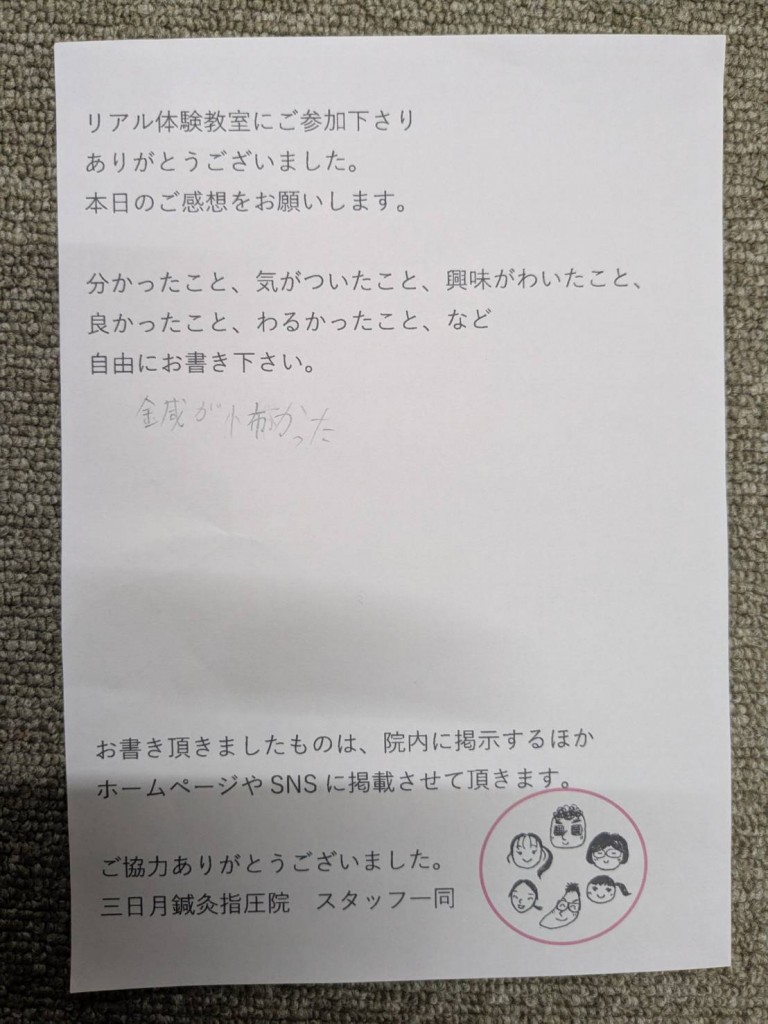 リアル体験教室にご参加下さり
ありがとうございました。
本日のご感想をお願いします。
分かったこと、気がついたこと、興味がわいたこと、
良かったこと、わるかったこと、など
自由にお書き下さい。
鍼が怖かった
お書き頂きましたものは、院内に掲示するほか
ホームページやSNSに掲載させて頂きます。
ご協力ありがとうございました。
三日月鍼灸指圧院　スタッフ一同